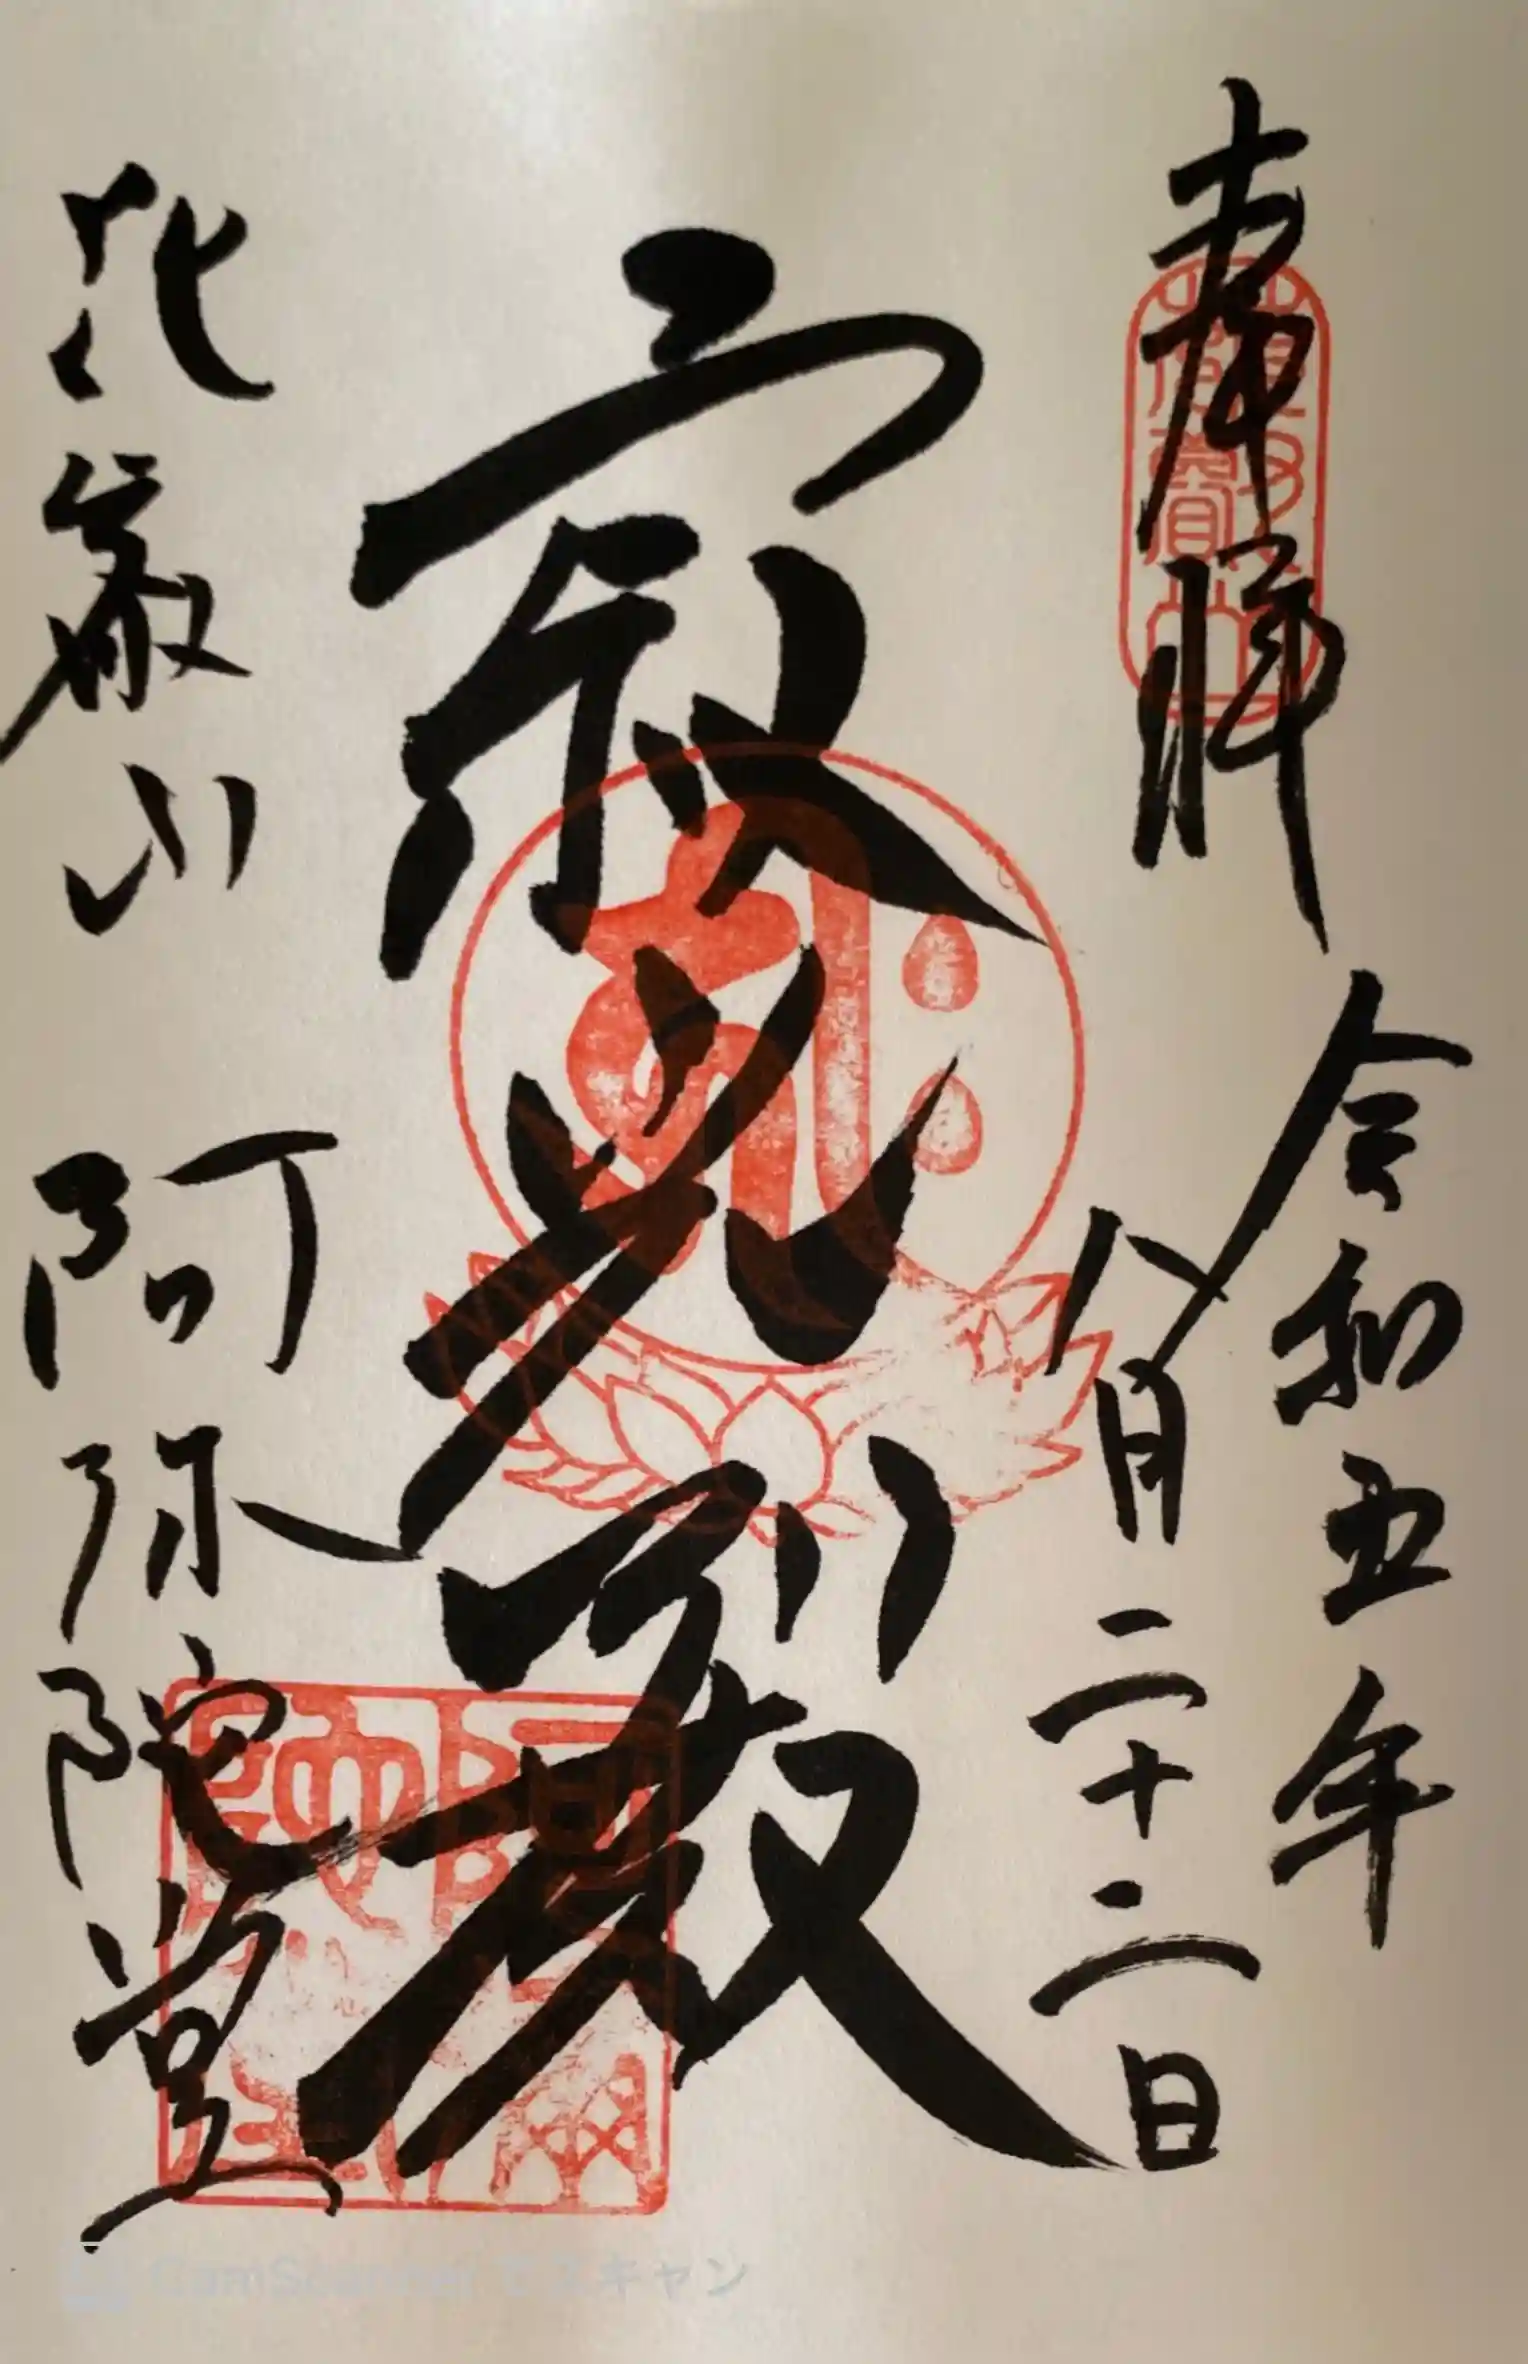 奉拝
令和五年
八月二十二日
寂光厳
花厳山
阿弥陀堂
CamScanner でスキャン